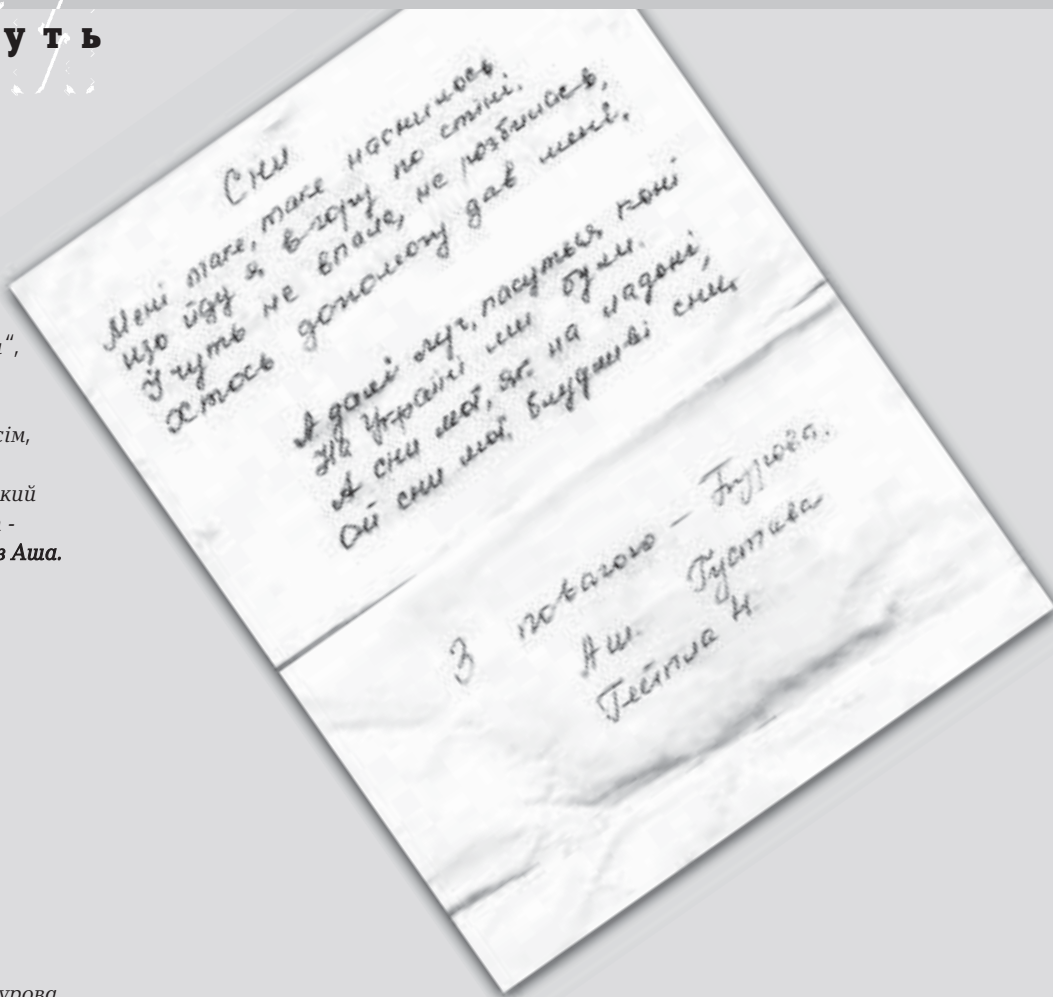 уть
Сни
Мені таке, таке наснилось
що йду я вгору по стіні.
Й чуть не впала, не розбилась,
Хтось допомогу дав мені.
А далі луг, пасуться коні
На Україні ми були.
А сни мої, як на ладоні,
Ой сни мої,
сни,
З повагою – Бурова.
Аш. Густава
Гейпла 4
“,
сім,
кий
-
з Аша.
урова